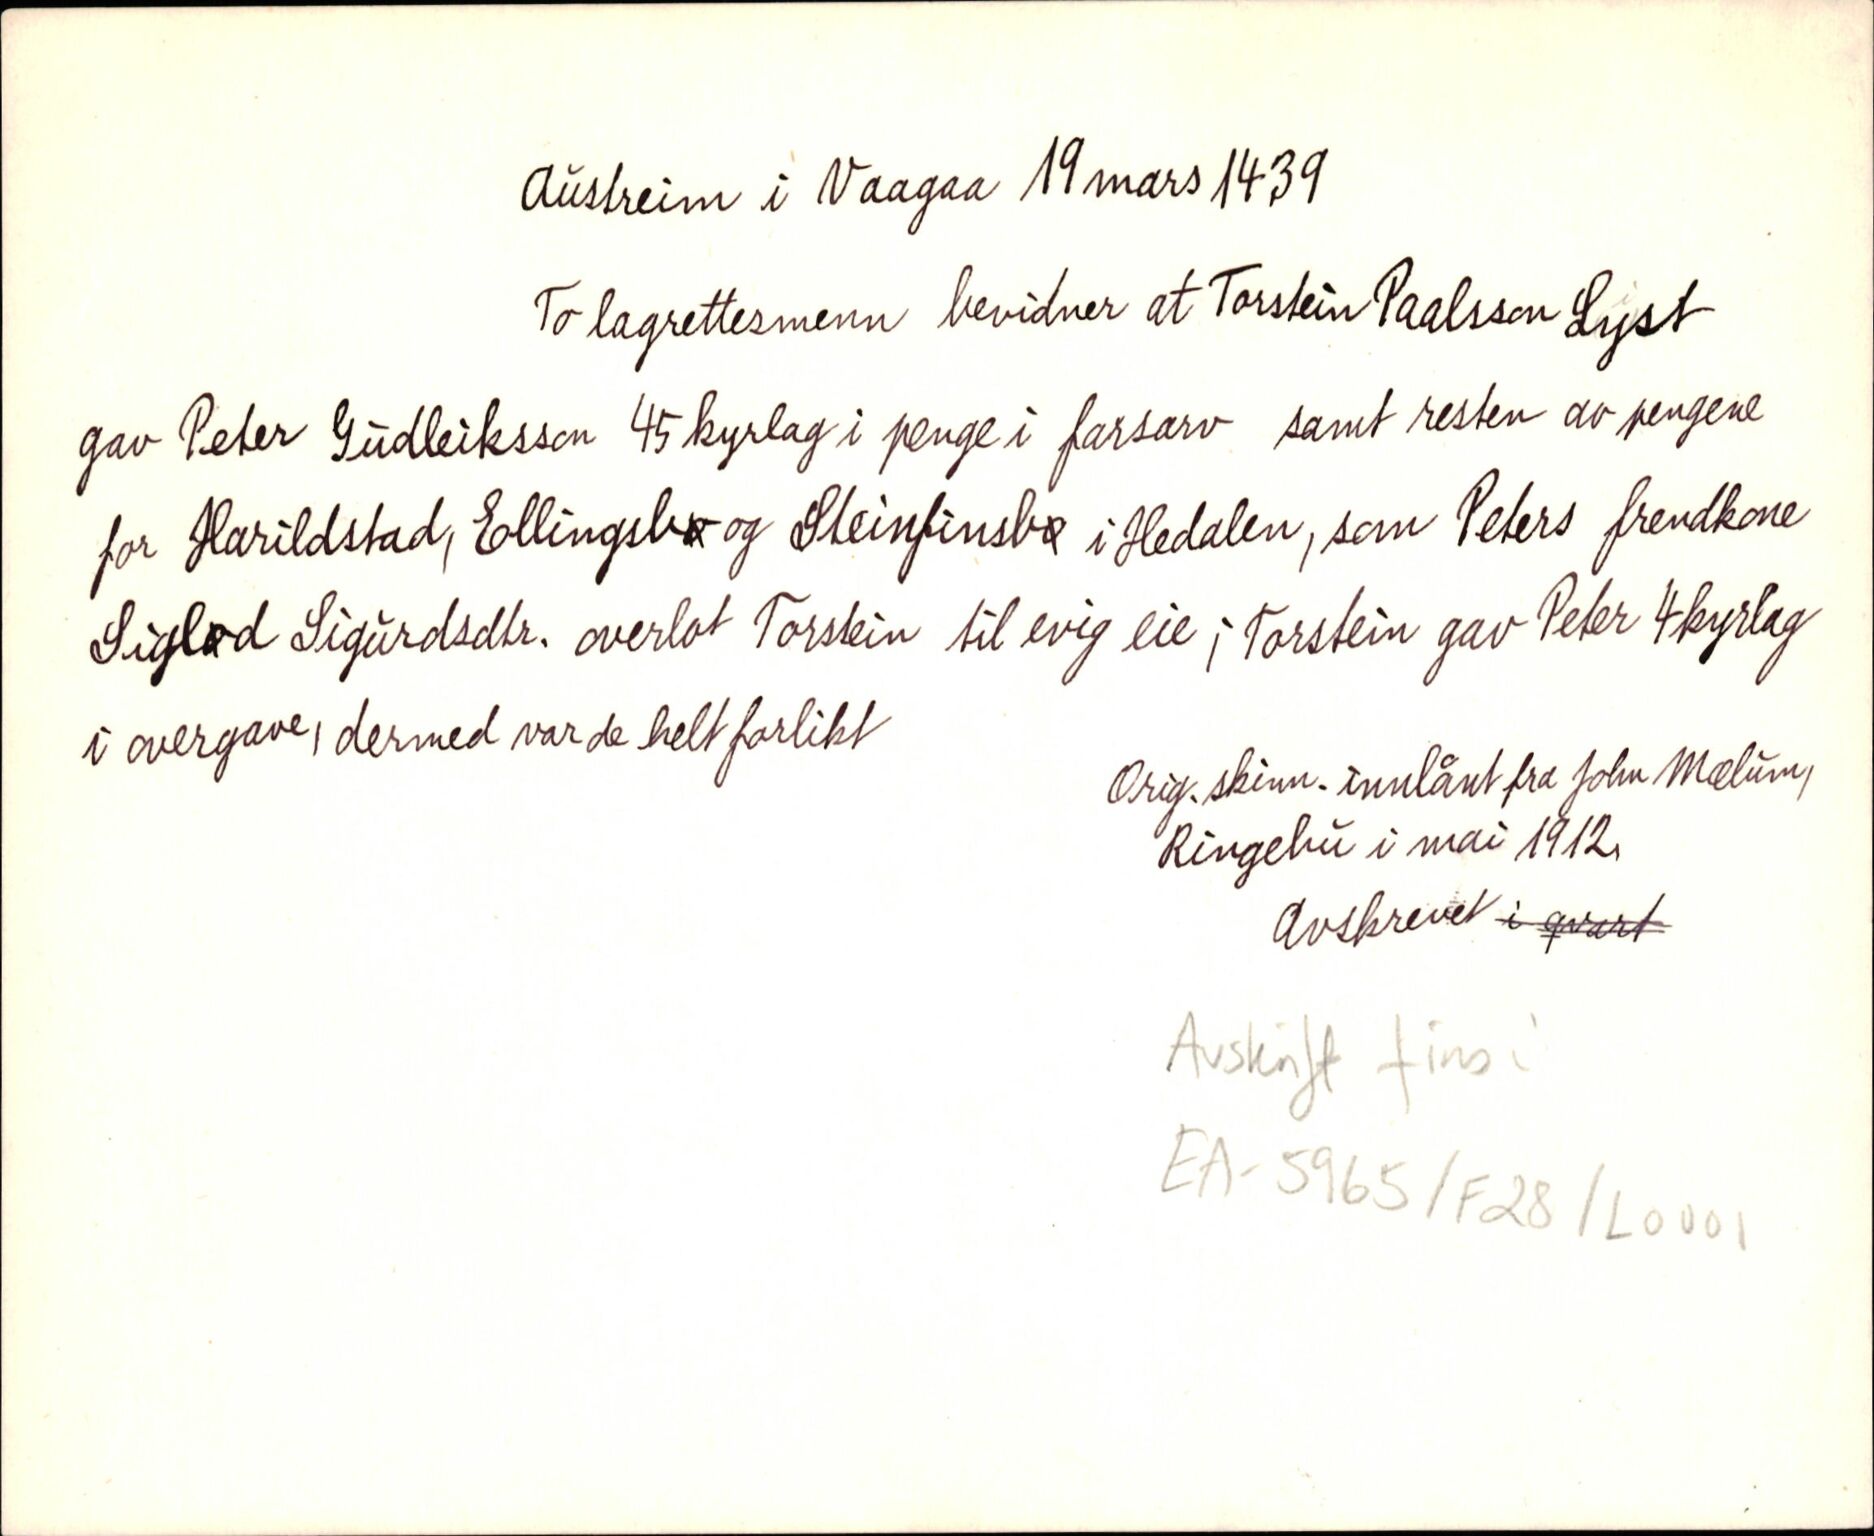 Austreim i Vaagaa 19 mars 1439
To lagrettesmenn bevidner at Torstein Paalsson Lyst
gav Peter Gudleiksson 45 kyrlag i penge i farsarv samt resten av pengene
for Harildstad, Ellingsbø og Steinfinsbø i Hedalen, som Peters frendkone
Siglød Sigurdsdtr. overlot Torstein til evig eie; Torstein gav Peter 4 kyrlag
i overgave, dermed var de helt forlikt
Orig. skinn. innlånt fra John Mælum,
Ringebu i mai 1912.
Avskrevet i qvart
Avskrift fins i
EA-5965/F28/L0001